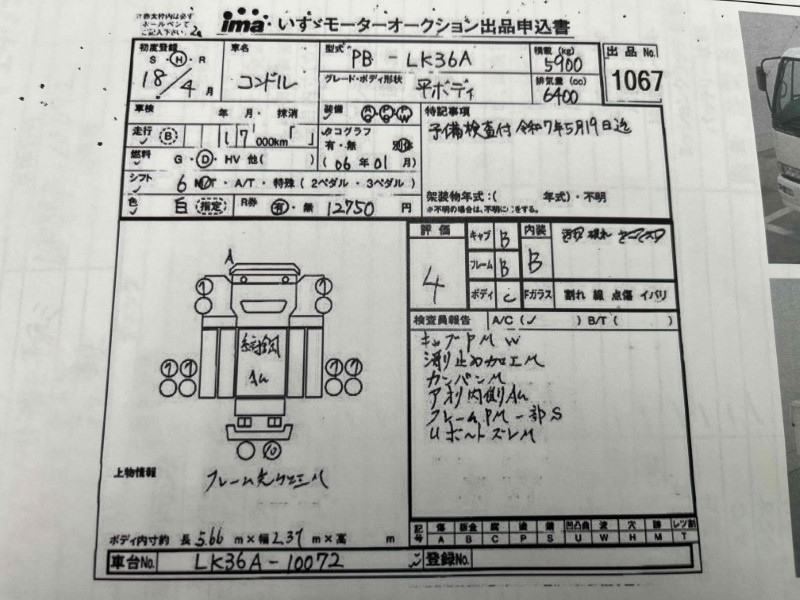 ※赤太枠内は必ず
ボールペンで
ご記入下さい。
ima いすゞモーターオークション出品申込書
初度登録
S・H・R
18/4月
車名
コンドル
型式 PB-LK36A
グレード・ボディ形状
平ボディ
積載(kg)
5900
排気量(cc)
6400
出品No.
1067
車検 年 月・抹消
走行 B 17 000km
燃料 G・D・HV 他( )
シフト 6 MT・A/T・特殊(2ペダル・3ペダル)
色 白 指定 R券 有・無 12750 円
装備
タコグラフ
有・無
(06年01月)
特記事項
予備検査付 令和7年5月19日迄
架装物年式:( 年式)・不明
※不明の場合は、不明に○をする。
評価 4
キャブ B
フレーム B
ボディ C
内装 B
Fガラス 割れ 線 点傷 イバリ
検査員報告 A/C(✓ ) B/T( )
キャブPM W
滑り止め加工M
カンバンM
アオリ内側AU
フレームPM一部S
UボルトズレM
A
AU
上物情報
フレーム先加工M
ボディ内寸約 長 5.66 m×幅 2.37 m×高 m
記号
傷 板金 腐 塗 錆 凹凸曲 波 穴 跡 レツ割
A B C P S U W H M T
車台No. LK36A-10072
登録No.